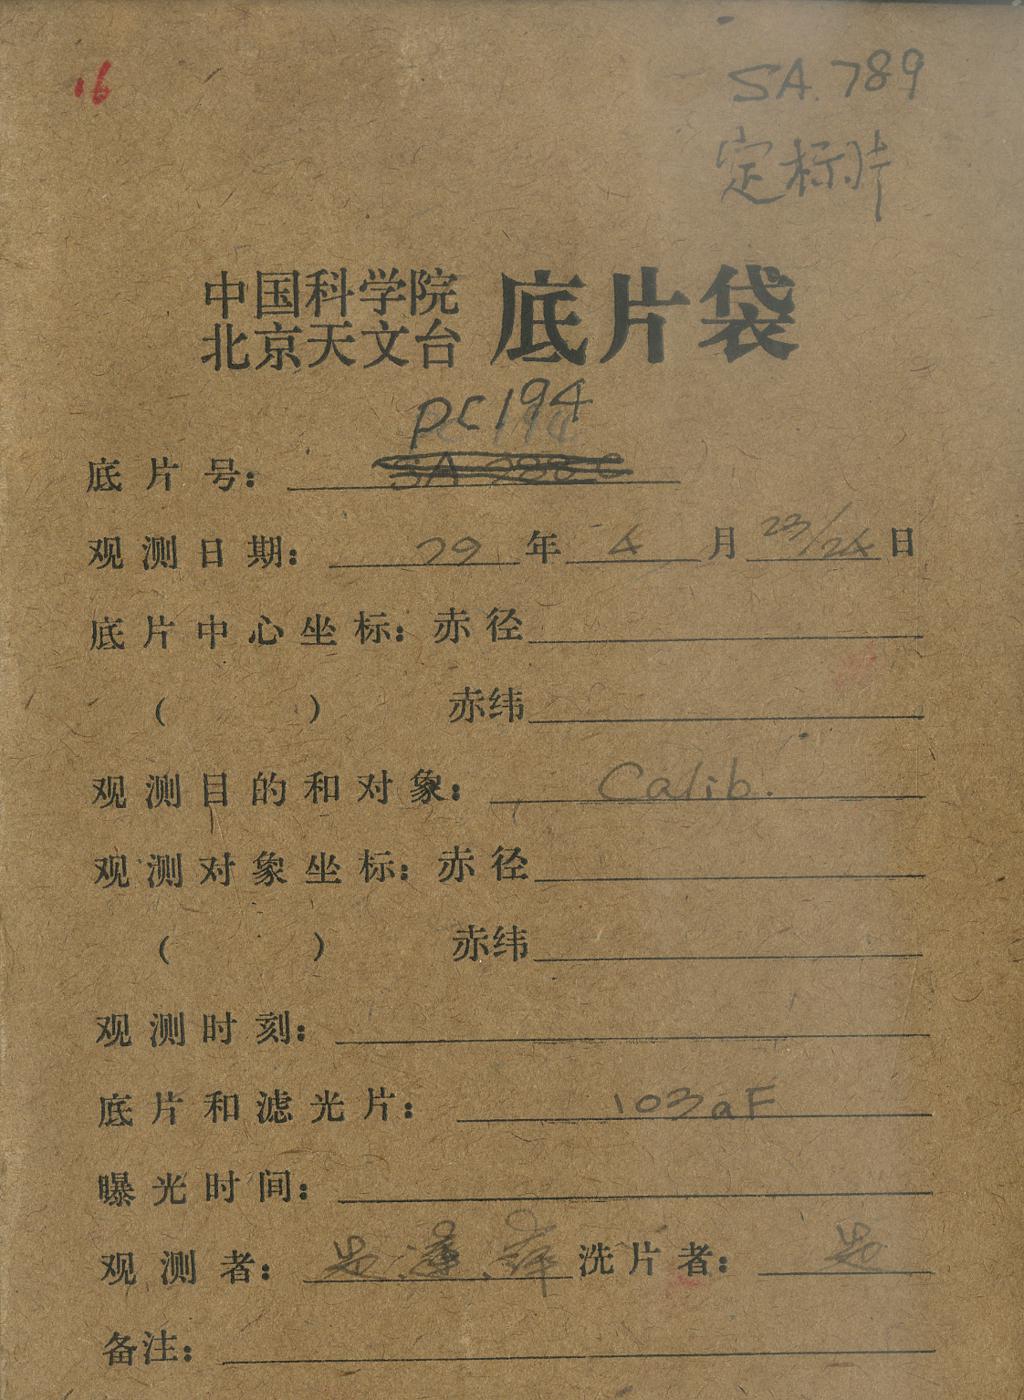 16
SA. 789
定标片
中国科学院
北京天文台 底片袋
PC194
底片号:
观测日期: 79 年 4 月 23/24 日
底片中心坐标: 赤径
( ) 赤纬
观测目的和对象: Calib.
观测对象坐标: 赤径
( ) 赤纬
观测时刻:
底片和滤光片: 103aF
曝光时间:
观测者: 洗片者:
备注: